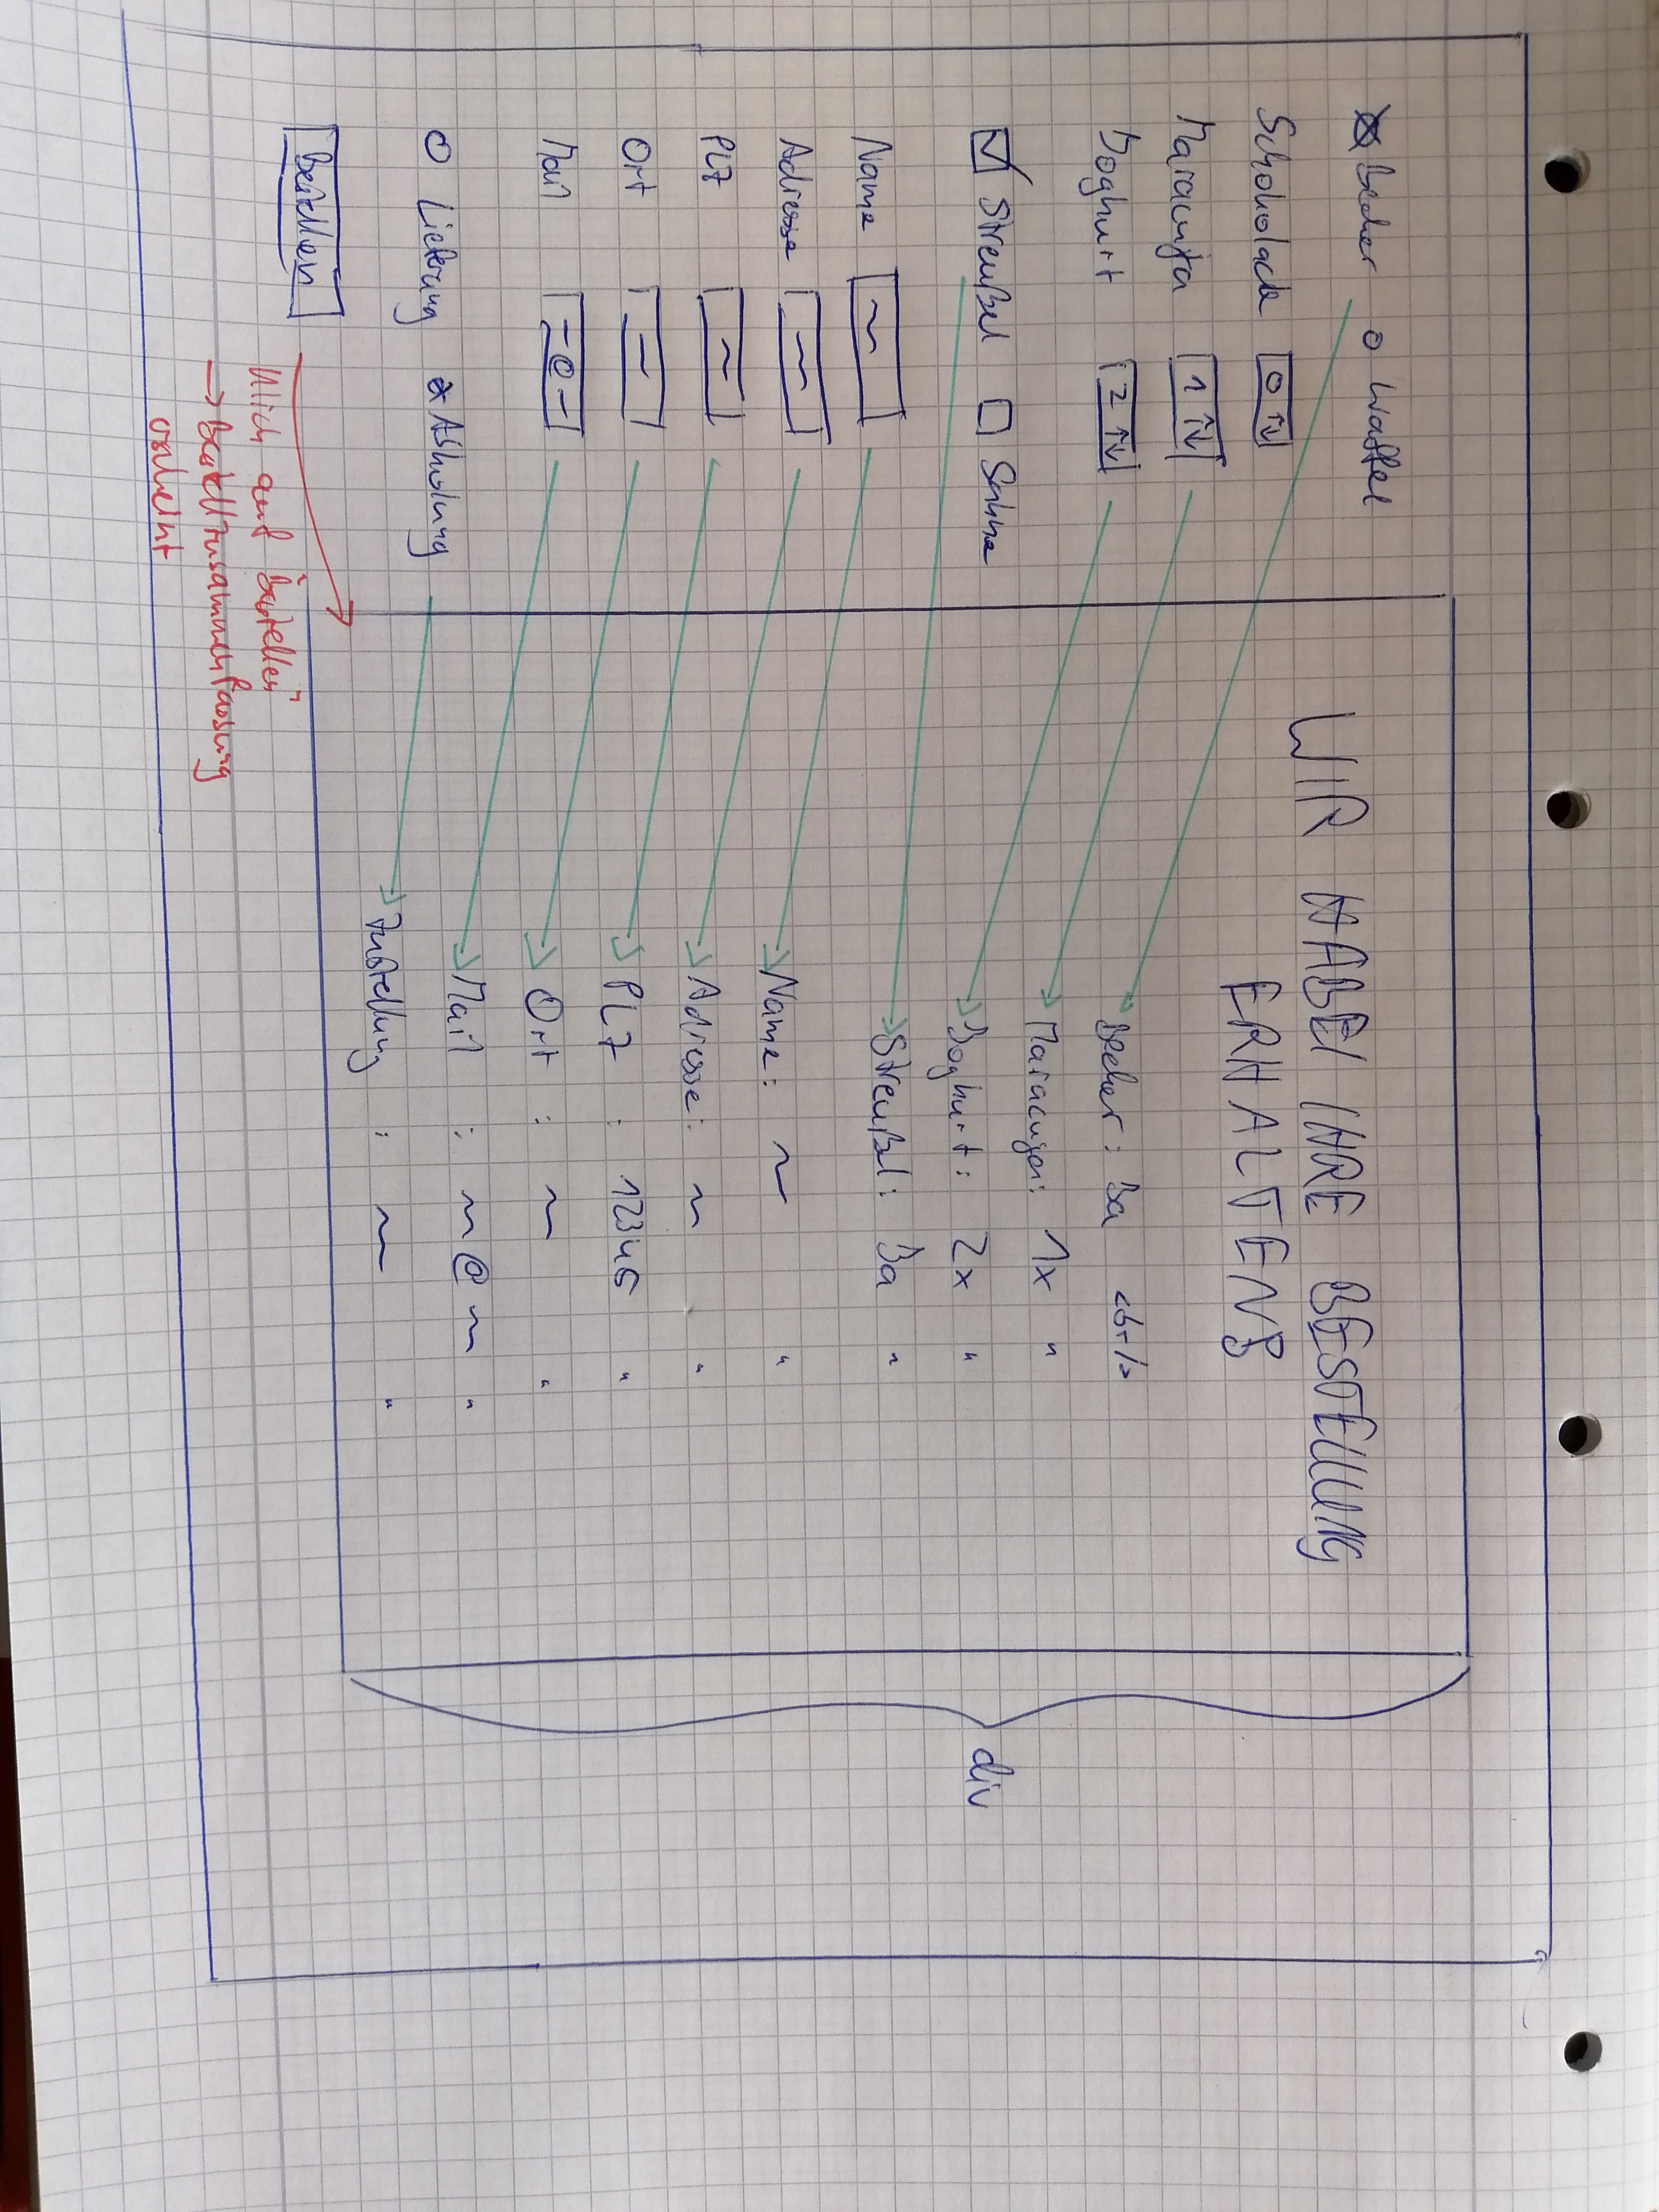 Becher o Waffel
Schokolade 0
Maracuja 1
Joghurt 2
Streußel Sahne
Name ~
Adresse ~
PLZ ~
Ort ~
Mail ~@~
o Lieferung Abholung
Bestellen
Klick auf "bestellen"
→ Bestellzusammenfassung
erscheint
WIR HABEN IHRE BESTELLUNG
ERHALTEN
Becher : Ja <br/>
Maracuja: 1x "
Joghurt: 2x "
Streußel: Ja "
Name: ~ "
Adresse: ~ "
PLZ : 12345 "
Ort : ~ "
Mail : ~@~ "
Zustellung : ~ "
div